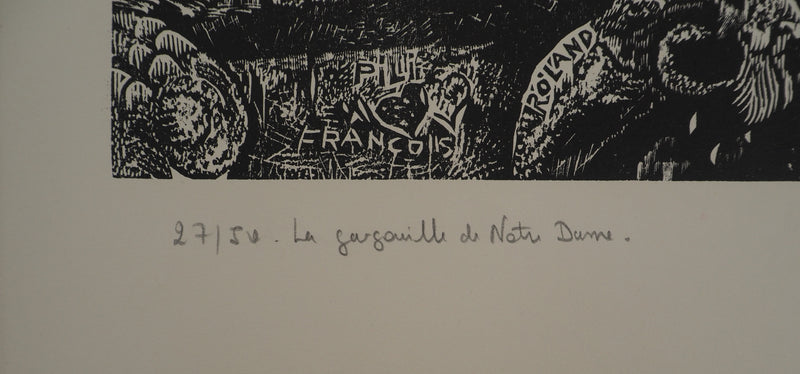 ROLAND
FRANÇOIS
27/50. La gargouille de Notre Dame.